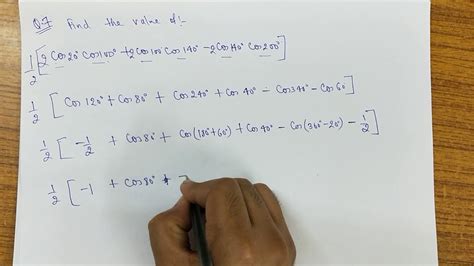 Q.7 Find the value of :-
1/2 [2 cos 20° cos 100° + 2 cos 100 cos 140° - 2 cos 140° cos 200°]
1/2 [cos 120° + cos 80° + cos 240° + cos 40 - cos 340 - cos 60]
1/2 [-1/2 + cos 80° + cos(180°+60°) + cos 40° - cos(360°-20°) - 1/2]
1/2 [-1 + cos 80° +